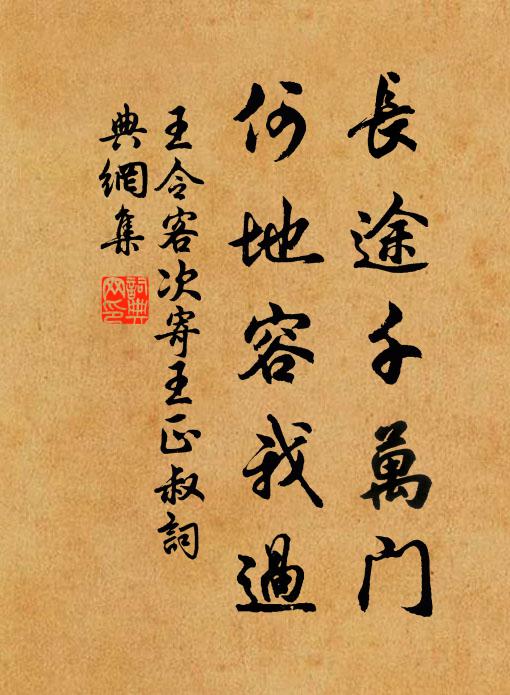 長途千萬門
何地容我過
王令客次寄王正叔詞
典網集
詞典網印